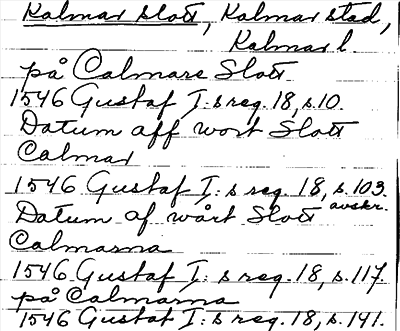 Kalmar slott, Kalmar stad,
Kalmar l.
på Calmare Slott
1546 Gustaf I:s reg. 18, s. 10.
Datum aff wort Slott
Calmar
1546 Gustaf I:s reg. 18, s. 103.
avskr.
Datum af wårt Slott
Calmarna
1546 Gustaf I:s reg. 18, s. 117.
på Calmarna
1546 Gustaf I:s reg. 18, s. 141.